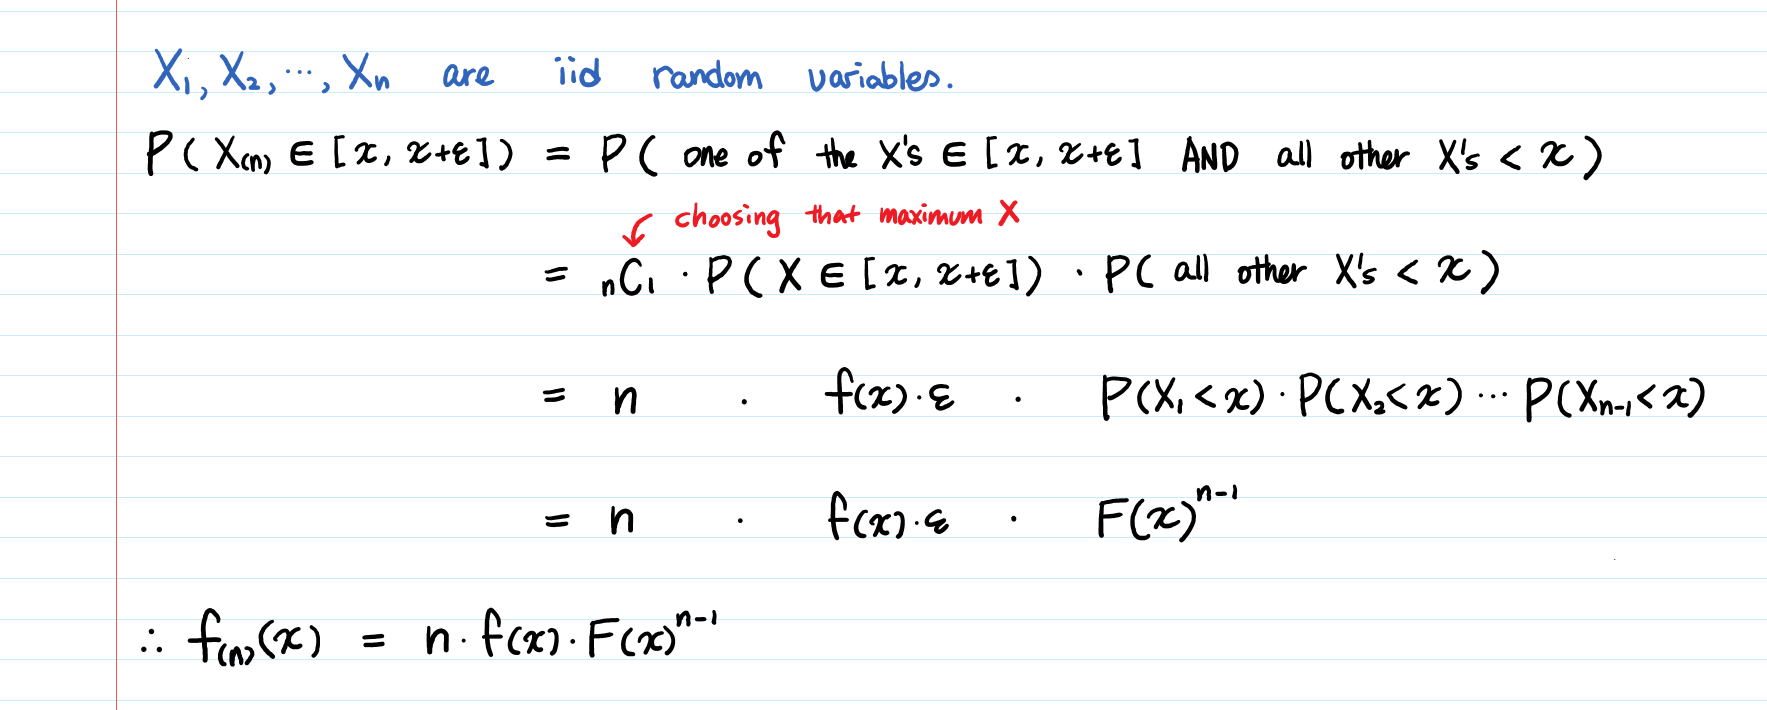 X₁, X₂, ⋯, Xn are iid random variables.
P( X(n) ∈ [x, x+ε] ) = P( one of the X's ∈ [x, x+ε] AND all other X's < x )
choosing that maximum X
= nC₁ · P( X ∈ [x, x+ε] ) · P( all other X's < x )
= n · f(x)·ε · P(X₁<x) · P(X₂<x) ⋯ P(Xn-1<x)
= n · f(x)·ε · F(x)^n-1
∴ f(n)(x) = n · f(x) · F(x)^n-1